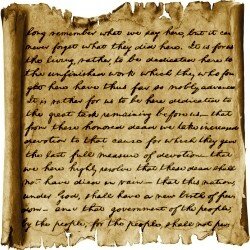 long remember what we say here, but it can
never forget what they did here. It is for us
the living, rather, to be dedicated here to
the unfinished work which they who fou-
ght here have thus far so nobly advanced
It is rather for us to be here dedicated to
the great task remaining before us — that
from these honored dead we take increased
devotion to that cause for which they gave
the last full measure of devotion — that
we here highly resolve that these dead shall
not have died in vain — that this nation,
under God, shall have a new birth of free-
dom — and that government of the people,
by the people, for the people, shall not per-